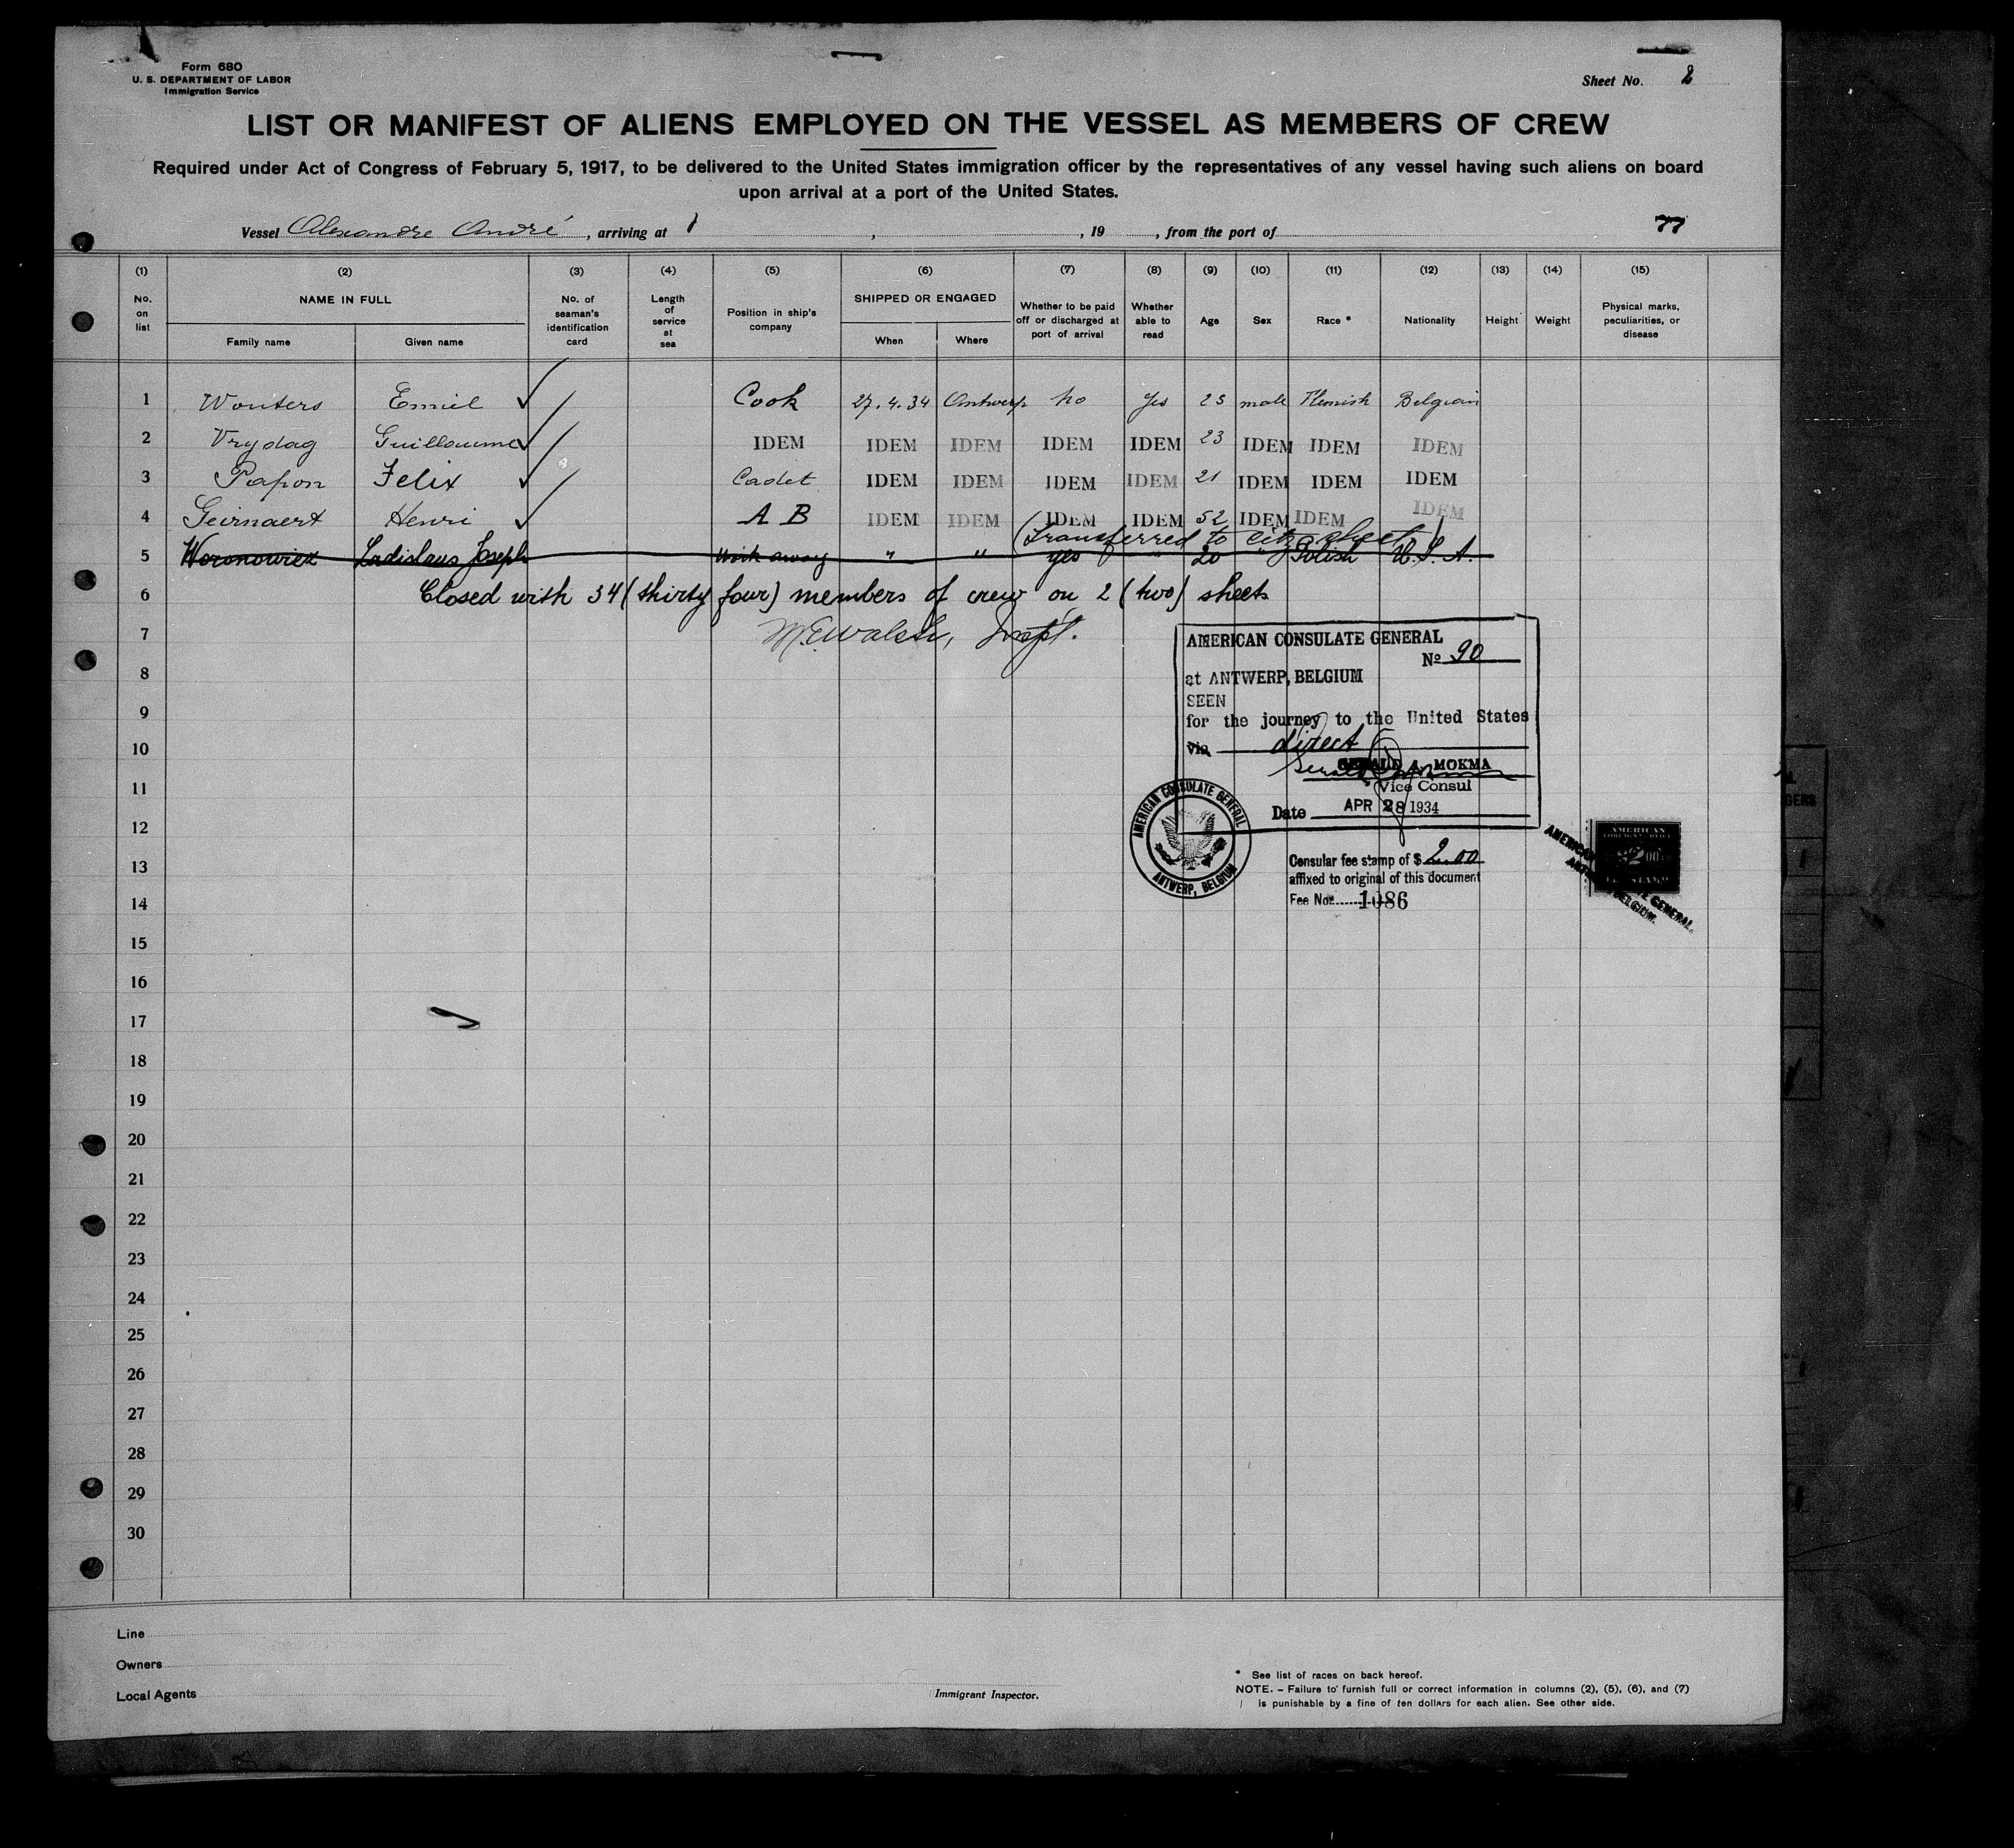 Form 680
U. S. DEPARTMENT OF LABOR
Immigration Service
Sheet No. 2
LIST OR MANIFEST OF ALIENS EMPLOYED ON THE VESSEL AS MEMBERS OF CREW
Required under Act of Congress of February 5, 1917, to be delivered to the United States immigration officer by the representatives of any vessel having such aliens on board
upon arrival at a port of the United States.
Vessel Alexandre André, arriving at , , 19 , from the port of
77
(1) (2) (3) (4) (5) (6) (7) (8) (9) (10) (11) (12) (13) (14) (15)
No. on list NAME IN FULL Family name Given name No. of seaman's identification card Length of service at sea Position in ship's company SHIPPED OR ENGAGED When Where Whether to be paid off or discharged at port of arrival Whether able to read Age Sex Race * Nationality Height Weight Physical marks, peculiarities, or disease
1 Wouters Emiel Cook 27.4.34 Antwerp no Yes 23 male Flemish Belgian
2 Vrydag Guillaume IDEM IDEM IDEM IDEM IDEM 23 IDEM IDEM IDEM
3 Papon Felix Cadet IDEM IDEM IDEM IDEM 21 IDEM IDEM IDEM
4 Geirnaert Henri A B IDEM IDEM IDEM IDEM 52 IDEM IDEM IDEM
(Transferred to citz sheet)
5 Woronowicz Ladislaus Joseph Work away " " yes " 20 " Polish U.S.A.
6 Closed with 34 (thirty four) members of crew on 2 (two) sheets
7 M.E. Walsh, Inspt.
8
9
10
11
12
13
14
15
16
17
18
19
20
21
22
23
24
25
26
27
28
29
30
AMERICAN CONSULATE GENERAL
No 90
at ANTWERP, BELGIUM
SEEN
for the journey to the United States
via direct
GERALD A. MOKMA
Vice Consul
Date APR 28 1934
AMERICAN CONSULATE GENERAL
ANTWERP, BELGIUM
Consular fee stamp of $ 2.00
affixed to original of this document
Fee No. 1086
Line
Owners
Local Agents
Immigrant Inspector.
* See list of races on back hereof.
NOTE. – Failure to furnish full or correct information in columns (2), (5), (6), and (7)
is punishable by a fine of ten dollars for each alien. See other side.